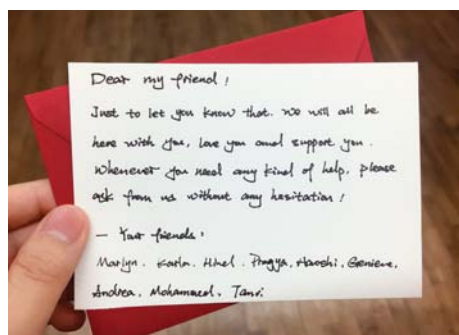 Dear my friend!
Just to let you know that. We will all be
here with you, love you and support you.
Whenever you need any kind of help, please
ask from us without any hesitation!
— Your friends:
Marlyn. Karla. Hinel. Pragya, Haoshi, Genieve,
Andrea, Mohammed, Tanvi